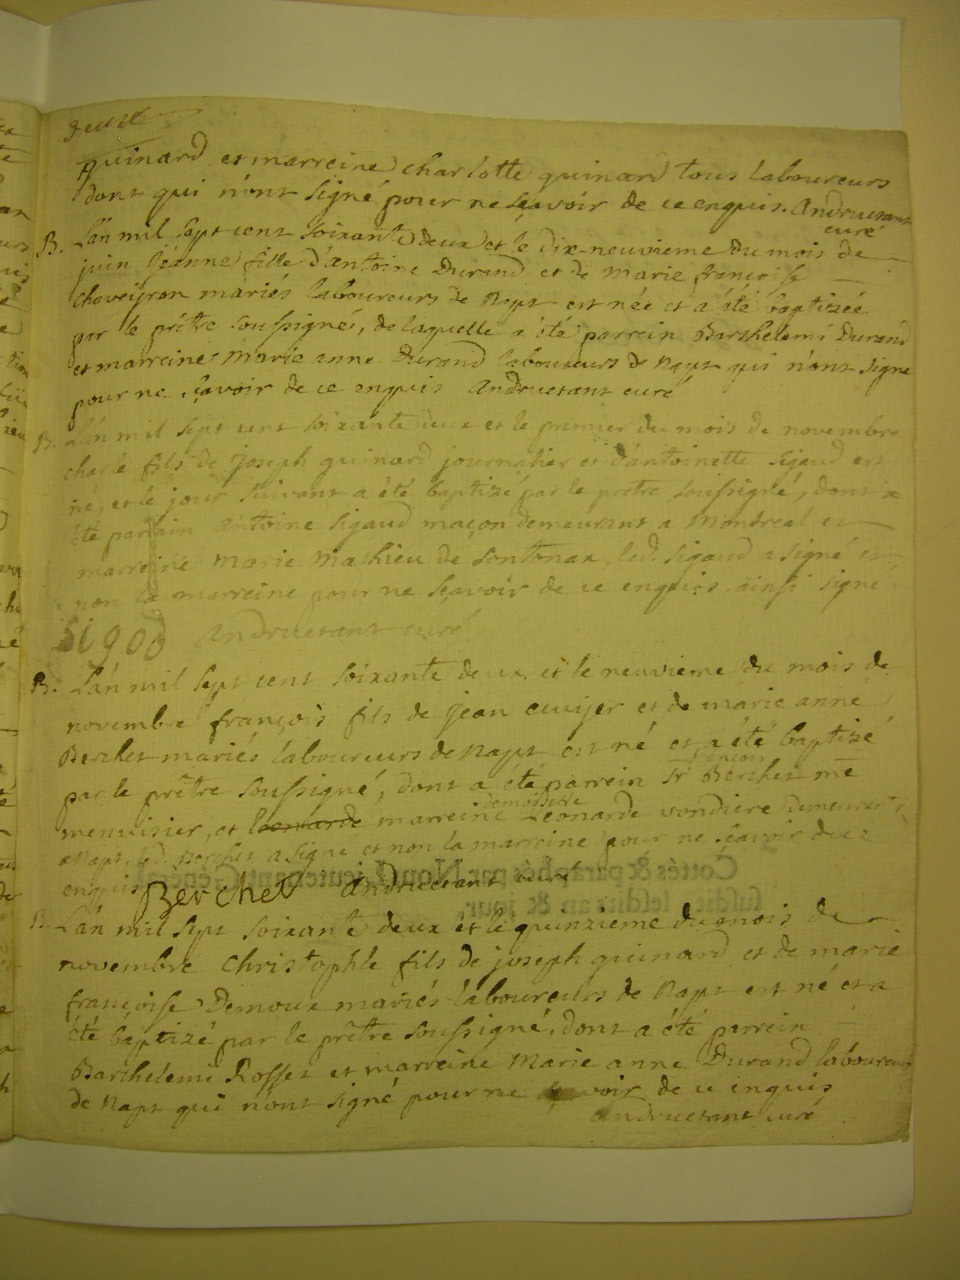 deux
quinard et marreine charlotte quinard tous laboureurs
dont qui n'ont signé pour ne sçavoir de ce enquis. Andruetant
curé
B. L'an mil sept cent soixante deux et le dix-neuvieme du mois de
juin jeanne fille d'antoine Durand et de marie françoise
cheveyron mariés laboureurs de Napt est née et a été baptizée
par le prêtre soussigné, de laquelle a été parrein Barthelemi Durand
et marreine marie anne Durand laboureurs de Napt qui n'ont signé
pour ne sçavoir de ce enquis Andruetant curé
B. L'an mil sept cent soixante deux et le premier du mois de novembre
charle fils de joseph quinard journalier et d'antoinette sigaud est
né, et le jour suivant a été baptizé par le prêtre soussigné, dont a
été parrain antoine sigaud maçon demeurant a Montreal et
marreine marie Mathieu de sontonax, led. sigaud a signé et
non la marreine pour ne sçavoir de ce enquis ainsi signé
Sigod Andruetant curé
B. L'an mil sept cent soixante deux et le neuvieme du mois de
novembre françois fils de jean cuvijer et de marie anne
Berchet mariés laboureurs de Napt est né et a été baptizé
par le prêtre soussigné, dont a été parrein sr françois Berchet me
menuisier, et leonarde marreine demoiselle Leonarde vondiere demeurant
a Napt led. Berchet a signé et non la marreine pour ne sçavoir de ce
enquis Berchet andruetant curé
Cottés & paraphés par Nous Lieutenant Général
susdit lesdits an & jour,
B. L'an mil sept soixante deux et le quinzieme du mois de
novembre christophle fils de joseph quinard et de marie
françoise Demoux mariés laboureurs de Napt est né et a
été baptizé par le prêtre soussigné, dont a été parrein
Barthelemi Rosset et marreine Marie anne Durand laboureurs
de Napt qui n'ont signé pour ne sçavoir de ce enquis
andruetant curé